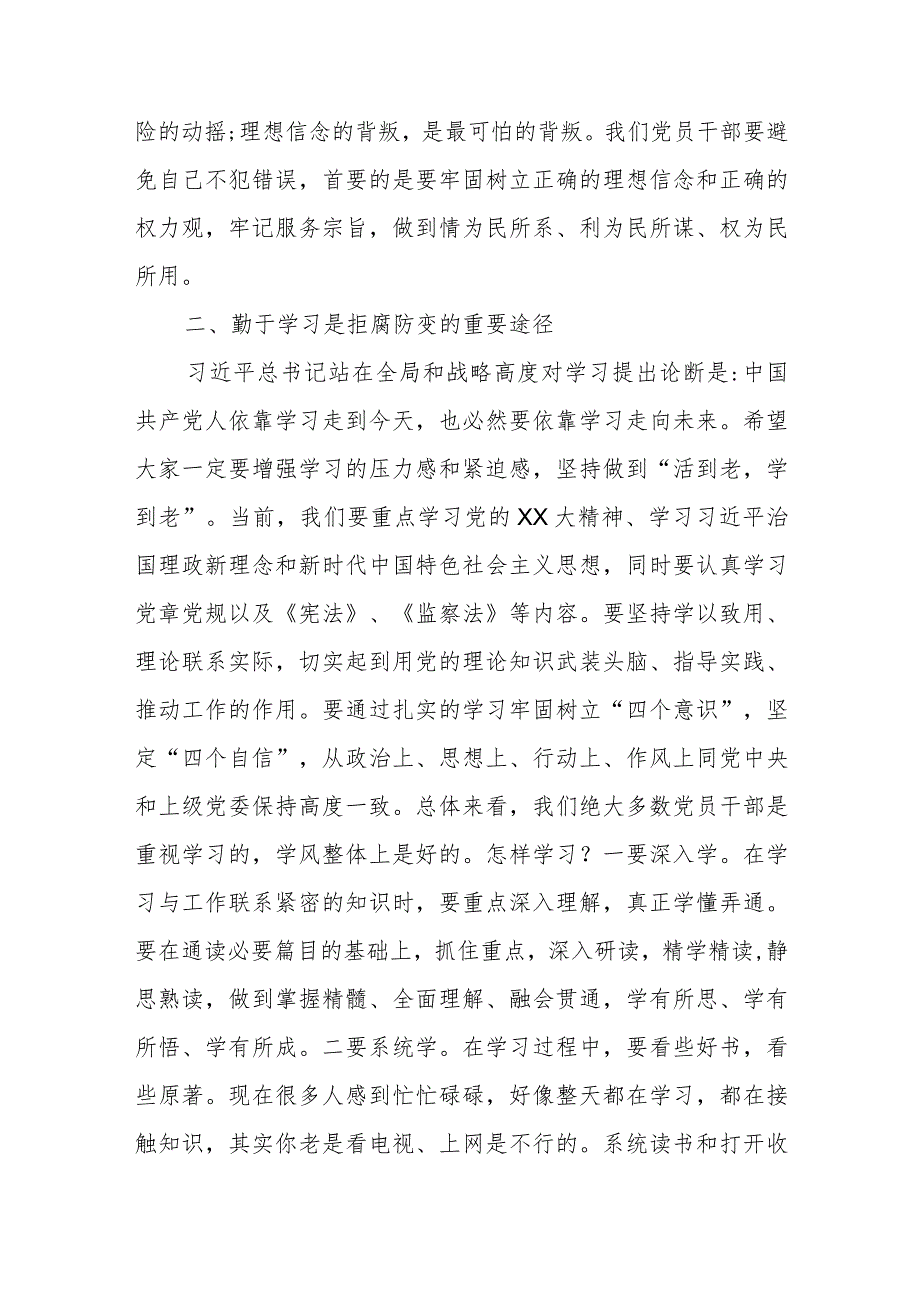 险的动摇;理想信念的背叛，是最可怕的背叛。我们党员干部要避
免自己不犯错误，首要的是要牢固树立正确的理想信念和正确的
权力观，牢记服务宗旨，做到情为民所系、利为民所谋、权为民
所用。
二、勤于学习是拒腐防变的重要途径
习近平总书记站在全局和战略高度对学习提出论断是:中国
共产党人依靠学习走到今天，也必然要依靠学习走向未来。希望
大家一定要增强学习的压力感和紧迫感，坚持做到“活到老，学
到老”。当前，我们要重点学习党的XX大精神、学习习近平治
国理政新理念和新时代中国特色社会主义思想，同时要认真学习
党章党规以及《宪法》、《监察法》等内容。要坚持学以致用、
理论联系实际，切实起到用党的理论知识武装头脑、指导实践、
推动工作的作用。要通过扎实的学习牢固树立“四个意识”，坚
定“四个自信”，从政治上、思想上、行动上、作风上同党中央
和上级党委保持高度一致。总体来看，我们绝大多数党员干部是
重视学习的，学风整体上是好的。怎样学习？一要深入学。在学
习与工作联系紧密的知识时，要重点深入理解，真正学懂弄通。
要在通读必要篇目的基础上，抓住重点，深入研读，精学精读,静
思熟读，做到掌握精髓、全面理解、融会贯通，学有所思、学有
所悟、学有所成。二要系统学。在学习过程中，要看些好书，看
些原著。现在很多人感到忙忙碌碌，好像整天都在学习，都在接
触知识，其实你老是看电视、上网是不行的。系统读书和打开收